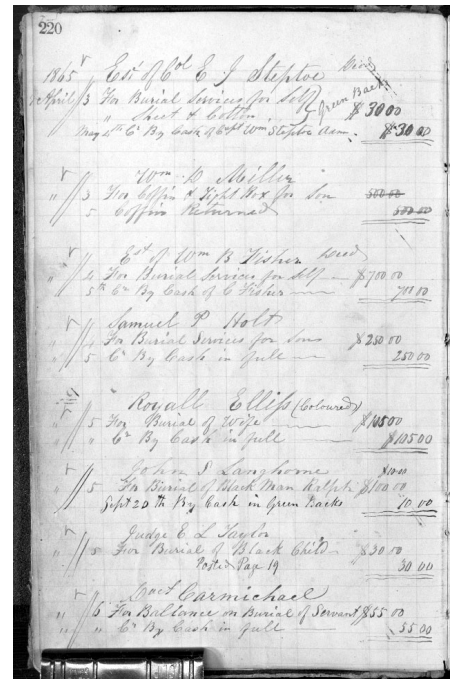 220
1865 " Est of Col E J Steptoe Decd
April 3 For Burial Services for Self } Green Back
" Sheet & Cotton } $30 00
May 4th Cr By Cash of Capt Wm Steptoe Adm. $30 00
Wm D Miller
" 3 For Coffin & Tight Box for Son 500 00
5 Coffin Returned 500 00
Est of Wm B Fisher Decd
" 4 For Burial Services for Self $700.00
5th Cr By Cash of C Fisher 700 00
Samuel P Holt
" 4 For Burial Services for Sons $250 00
" 5 Cr By Cash in full 250 00
Royall Elliss (Coloured)
" 5 For Burial of Wife $105 00
" " Cr By Cash in full $105 00
John S Langhorne $10 00
" 5 For Burial of Black Man $100 00
Sept 20th By Cash in Green Backs 10.00
Judge E L Taylor
" 5 For Burial of Black Child $30 00
Posted Page 19 30 00
Doct Carmichael
" 5 For Ballance on Burial of Servant $55 00
" " Cr By Cash in full 55 00